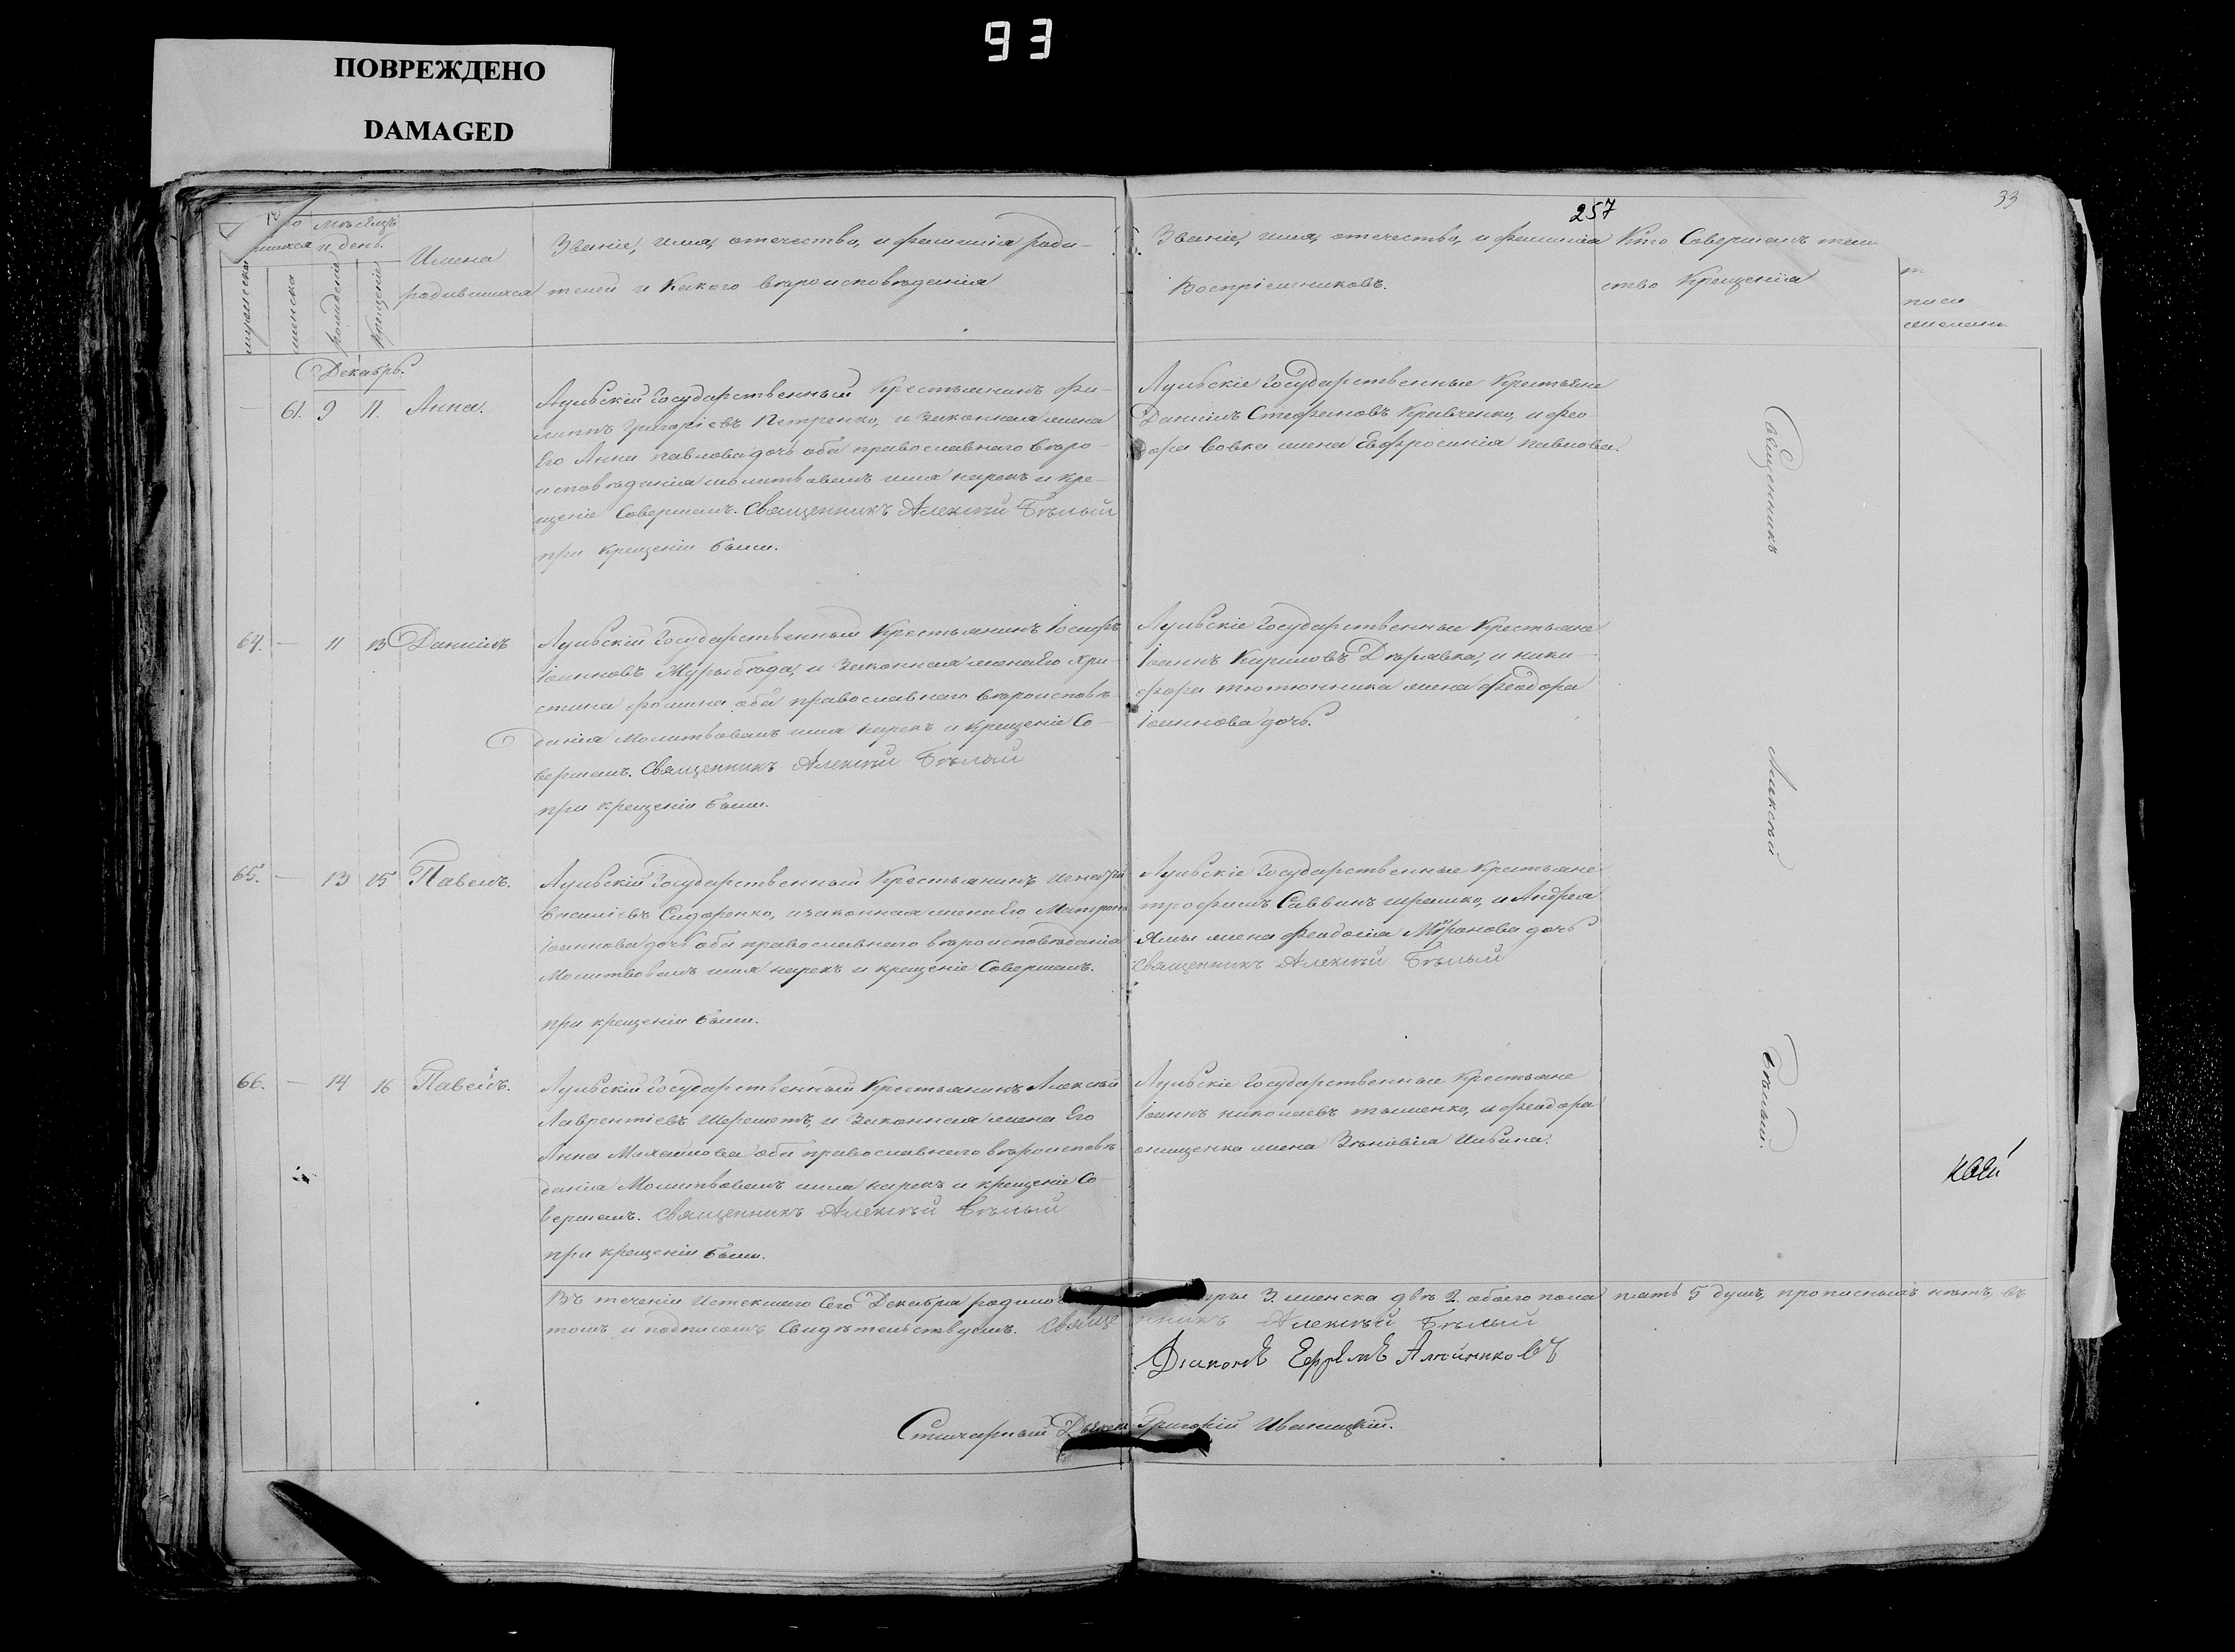 93
ПОВРЕЖДЕНО
DAMAGED
257
33
мѣсяцъ
и день.
мужеска
женска
рожденіе
Крещеніе
Имена
родившихся
Званіе, имя, отечество, и фамилія роди-
телей и Какого вѣроисповѣданія
Званіе, имя, отечество, и фамилія
Воспріемниковъ.
Кто Совершалъ таин
ство Крещенія
Декабрь.
— 61. 9 11. Анна.
Государственный Крестьянинъ Фи-
липъ Григоріевъ Петренко, и Законная жена
Его Анна Павлова дочь оба православнаго вѣро-
исповѣданія молитвовалъ имя нарекъ и кре-
щеніе Совершалъ. Священникъ Алексѣй Бѣлый
при крещеніи были.
Государственные Крестьяне
Даніилъ Стефановъ Кравченко, и Фео
дора Совка жена Евфросинія Павлова.
64. — 11 13 Даніилъ
Государственный Крестьянинъ Іосифъ
Іоанновъ Журыбѣда, и Законная жена Его Хри-
стина Фомина оба православнаго вѣроисповѣ
данія Молитвовалъ имя нарекъ и Крещеніе Со-
вершалъ. Священникъ Алексѣй Бѣлый
при крещеніи были.
Государственные Крестьяне
Іоаннъ Кириловъ и Ники
фора тютюнника жена Феодора
Іоаннова дочь.
65. — 13 15 Павелъ.
Государственный Крестьянинъ Игнатій
Василіевъ Сидоренко, и законная жена Его Матрона
Іоаннова дочь оба православнаго вѣроисповѣданія
Молитвовалъ имя нарекъ и крещеніе Совершалъ.
при крещеніи были.
Государственные Крестьяне
трофимъ Саввинъ и Андрея
жена Феодосія дочь
Священникъ Алексѣй Бѣлый
66. — 14 16 Павелъ.
Государственный Крестьянинъ Алексѣй
Лаврентіевъ Шереметъ, и Законная жена Его
Анна Михайлова оба православнаго вѣроисповѣ
данія Молитвовалъ имя нарекъ и крещеніе Со-
вершалъ. Священникъ Алексѣй Бѣлый
при крещеніи были.
Государственные Крестьяне
Іоаннъ Николаевъ и Феодора
онищенка жена Зѣновія
Священникъ
Алексѣй
Бѣлый.
Въ теченіи Истекшаго Сего Декабря три 3. женска двѣ 2. обоего пола пять 5 душъ, прописныхъ нѣтъ, въ
томъ и подписомъ Свидѣтельствуемъ. Священникъ Алексѣй Бѣлый
Діаконъ Ефремъ
Стихарный Дьячекъ Григорій Иваницкій.